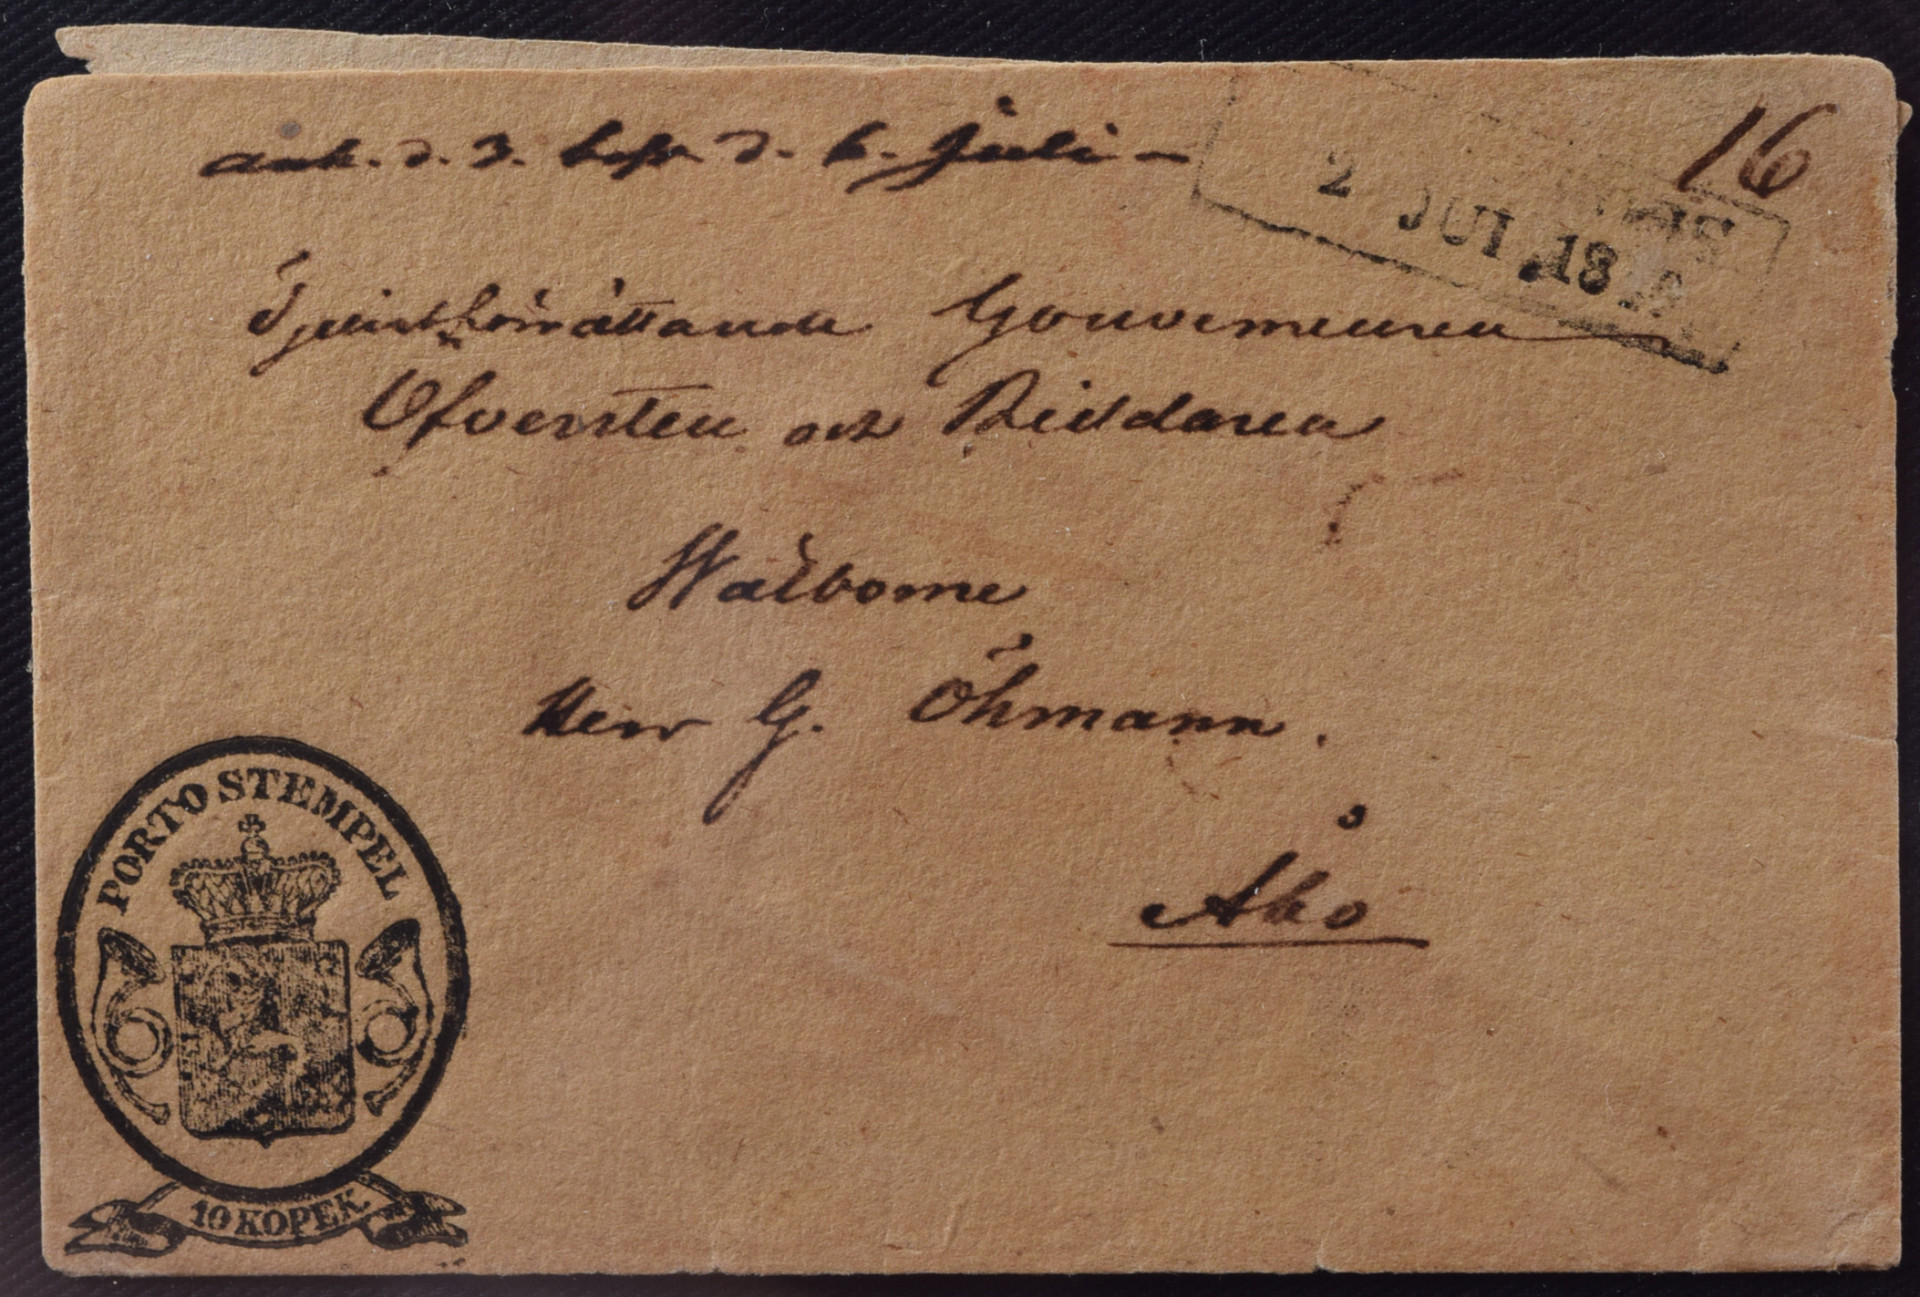 ank. d. 3. besv. d. 6. Juli –
16
2 JUL. 18
Tjenstförrättande Gouverneuren
Öfversten och Riddaren
Walborne
Herr G. Öhmann.
Åbo
PORTO STEMPEL
10 KOPEK.